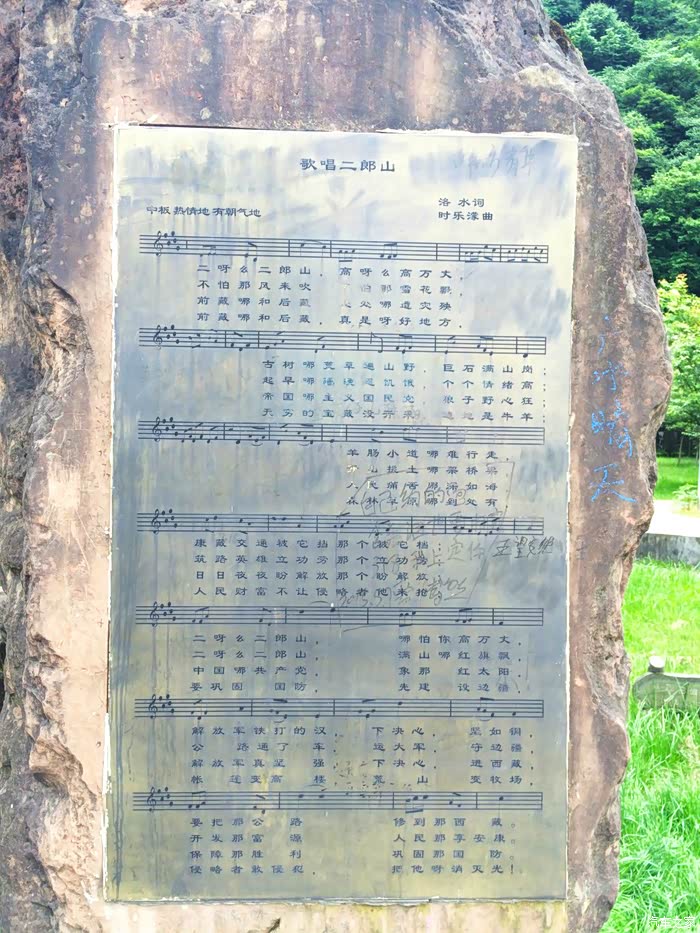 歌唱二郎山
洛 水词
中板 热情地 有朝气地
时乐濛 曲
二 呀 么 二 郎 山, 高 呀 么 高 万 丈,
不 怕 那 风 来 吹 怕 那 雪 花 飘,
前 藏 哪 和 后 藏 处 哪 遭 灾 殃
前 藏 哪 和 后 藏, 真 是 呀 好 地 方,
古 树 哪 荒 草 遍 山 野, 巨 石 满 山 岗;
起 早 哪 摸 忍 饥 饿, 个 个 情 绪 高
帝 国 哪 主 义 国 民 党 狼 子 野 心 狂;
无 穷 的 宝 藏 没 开 采 遍 地 是 牛 羊;
羊 肠 小 道 哪 难 行 走,
哪 架 桥 梁
如 海
到 处 有
康 藏 交 通 被 它 挡 那 个 被 它 挡
筑 路 英 雄 立 功 劳 那 个 立 功 劳
日 日 夜 夜 盼 解 放 那 个 盼 解 放
人 民 财 富 不 让 侵 略 者 他 来 抢
二 呀 么 二 郎 山, 哪 怕 你 高 万 丈
二 呀 么 二 郎 山, 满 山 哪 红 旗 飘,
中 国 哪 共 产 党 象 那 红 太 阳
要 巩 固 国 防, 先 建 设 边 疆
解 放 军 铁 打 的 汉, 下 决 心, 坚 如 钢,
公 路 通 了 车, 运 大 军, 守 边 疆
解 放 军 真 坚 强 下 决 心; 进 西 藏
帐 篷 变 高 楼, 荒 山 变 牧 场,
要 把 那 公 路 修 到 那 西 藏。
开 发 那 富 源 人 民 那 享 安 康。
保 障 那 胜 利 巩 固 那 国 防。
侵 略 者 敢 侵 犯, 把 他 呀 消 灭 光!
汽车之家